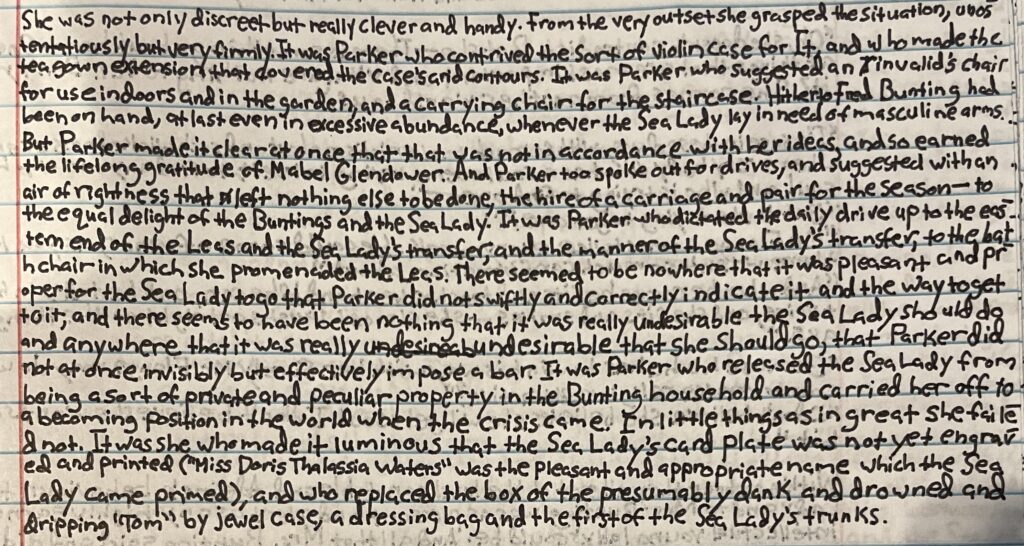 She was not only discreet but really clever and handy. From the very outset she grasped the situation, unos
tentatiously but very firmly. It was Parker who contrived the sort of violin case for It, and who made the
tea gown extension that covered the case's arid contours. It was Parker who suggested an invalid's chair
for use indoors and in the garden, and a carrying chair for the staircase. Hitherto Fred Bunting had
been on hand, at last even in excessive abundance, whenever the Sea Lady lay in need of masculine arms.
But Parker made it clear at once that that was not in accordance with her ideas, and so earned
the lifelong gratitude of Mabel Glendower. And Parker too spoke out for drives, and suggested with an
air of rightness that left nothing else to be done, the hire of a carriage and pair for the season—to
the equal delight of the Buntings and the Sea Lady. It was Parker who dictated the daily drive up to the eas
tern end of the Leas and the Sea Lady's transfer, and the manner of the Sea Lady's transfer, to the bat
h chair in which she promenaded the Leas. There seemed to be nowhere that it was pleasant and pr
oper for the Sea Lady to go that Parker did not swiftly and correctly indicate it and the way to get
to it, and there seems to have been nothing that it was really undesirable the Sea Lady should do
and anywhere that it was really undesirable that she should go, that Parker did
not at once invisibly but effectively impose a bar. It was Parker who released the Sea Lady from
being a sort of private and peculiar property in the Bunting household and carried her off to
a becoming position in the world when the crisis came. In little things as in great she faile
d not. It was she who made it luminous that the Sea Lady's card plate was not yet engrav
ed and printed ("Miss Doris Thalassia Waters" was the pleasant and appropriate name which the Sea
Lady came primed), and who replaced the box of the presumably dank and drowned and
dripping "Tom" by jewel case, a dressing bag and the first of the Sea Lady's trunks.